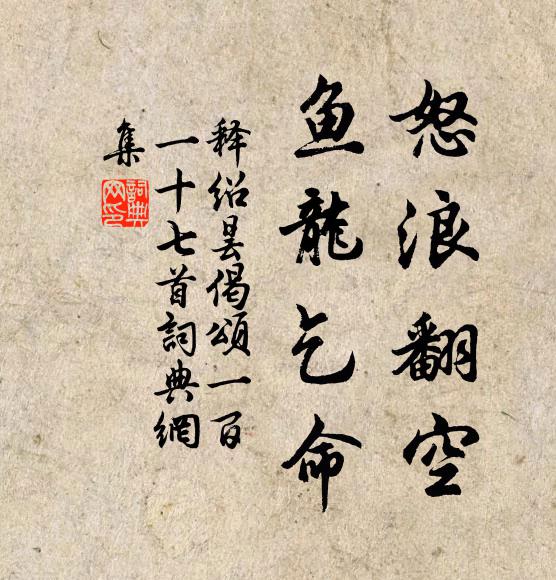 怒浪翻空
鱼龍乞命
释绍昙偈颂一百
一十七首詞典網
集
詞典
网印